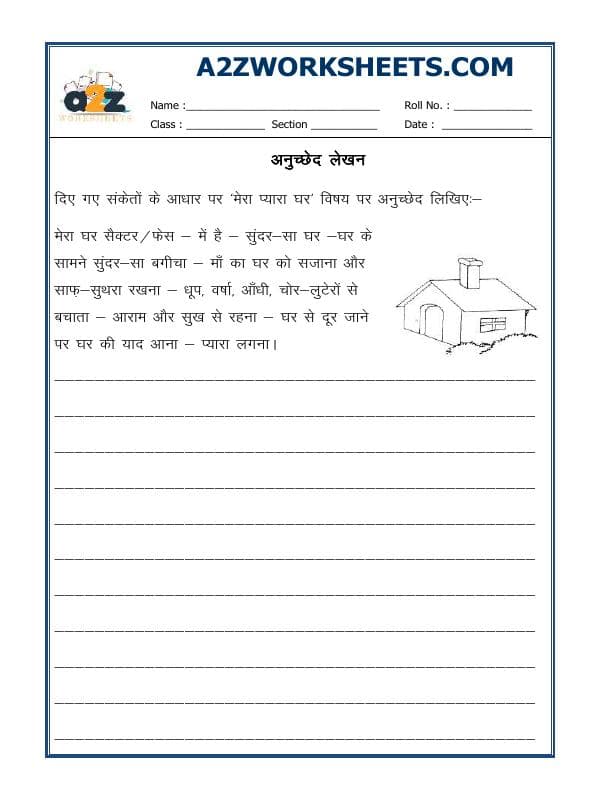 A2ZWORKSHEETS.COM
a2z
WORKSHEETS
Name :______________________________ Roll No. : ____________
Class : ____________ Section __________ Date : ______________
अनुच्छेद लेखन
दिए गए संकेतों के आधार पर ‘मेरा प्यारा घर’ विषय पर अनुच्छेद लिखिएः–
मेरा घर सैक्टर/फेस – में है – सुंदर–सा घर –घर के
सामने सुंदर–सा बगीचा – माँ का घर को सजाना और
साफ़–सुथरा रखना – धूप, वर्षा, आँधी, चोर–लुटेरों से
बचाता – आराम और सुख से रहना – घर से दूर जाने
पर घर की याद आना – प्यारा लगना।